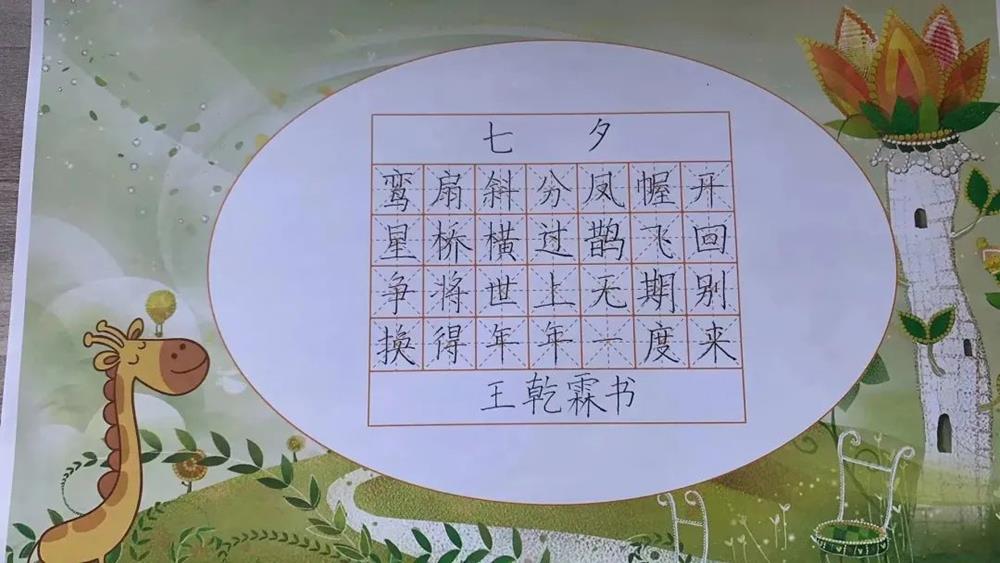 七夕
鸾扇斜分凤幄开
星桥横过鹊飞回
争将世上无期别
换得年年一度来
王乾霖书